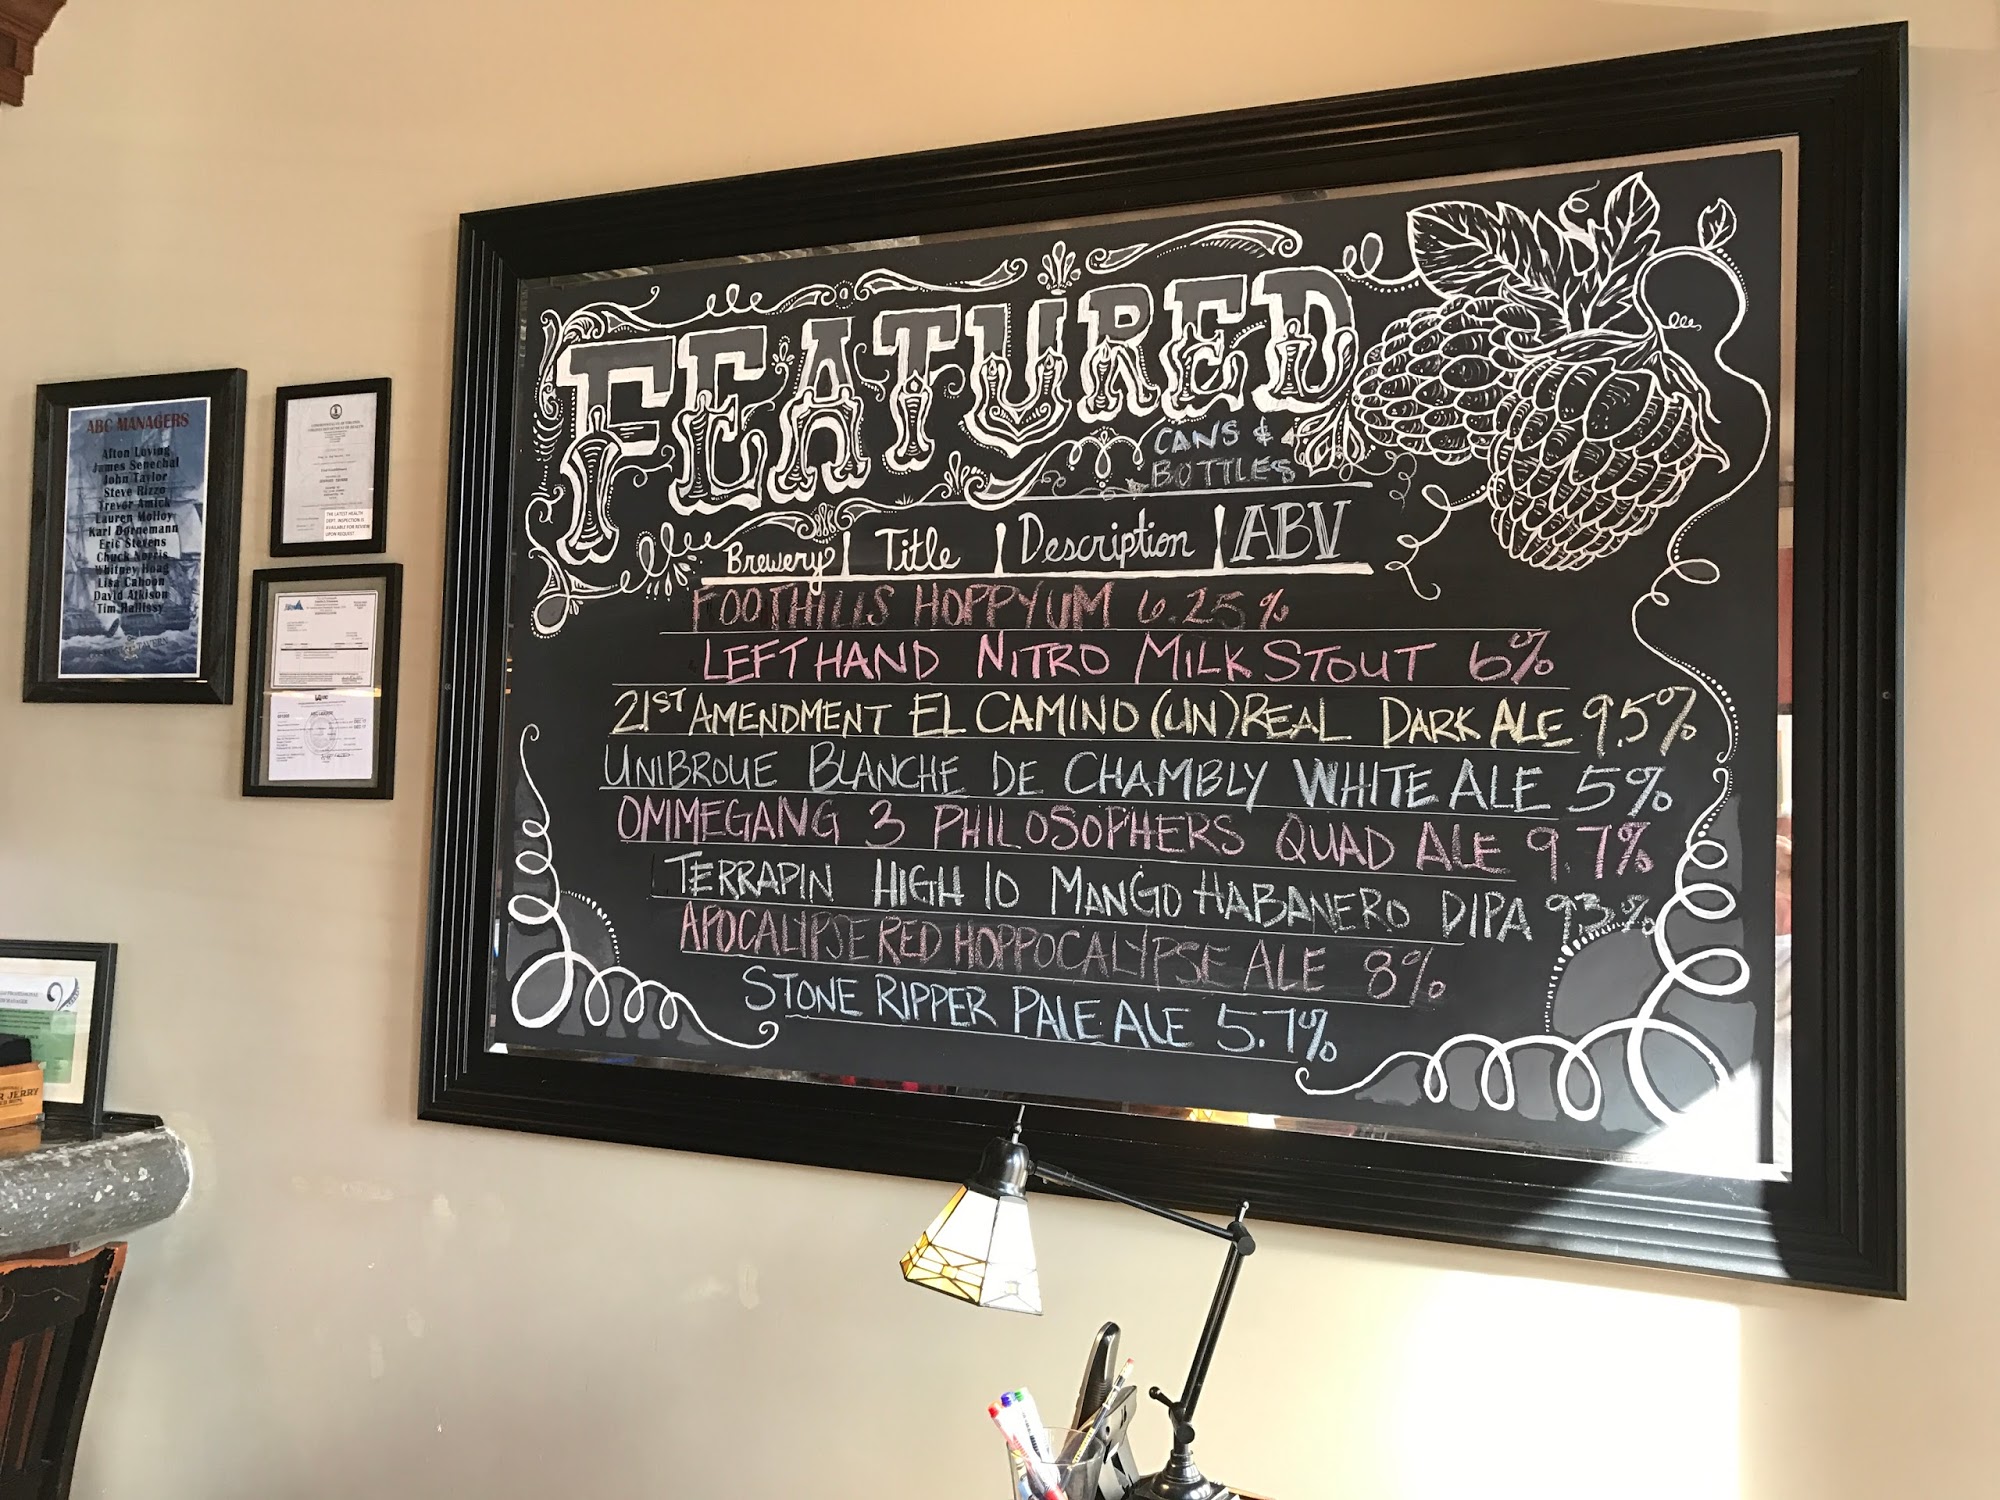 FEATURED
CANS &
BOTTLES
Brewery | Title | Description | ABV
FOOTHILLS HOPPYUM 6.25%
LEFT HAND NITRO MILK STOUT 6%
21ST AMENDMENT EL CAMINO (UN)REAL DARK ALE 9.5%
UNIBROUE BLANCHE DE CHAMBLY WHITE ALE 5%
OMMEGANG 3 PHILOSOPHERS QUAD ALE 9.7%
TERRAPIN HIGH 10 MANGO HABANERO DIPA 9.3%
APOCALYPSE RED HOPPOCALYPSE ALE 8%
STONE RIPPER PALE ALE 5.7%
ABC MANAGERS
Afton Loving
James Senechal
John Taylor
Steve Rizzo
Trevor Amick
Lauren Molloy
Karl Dornemann
Eric Stevens
Chuck Norris
Whitney Hoag
Lisa Cahoon
David Atkison
Tim Hallissy
TAVERN
THE LATEST HEALTH
DEPT. INSPECTION IS
AVAILABLE FOR REVIEW
UPON REQUEST
JERRY